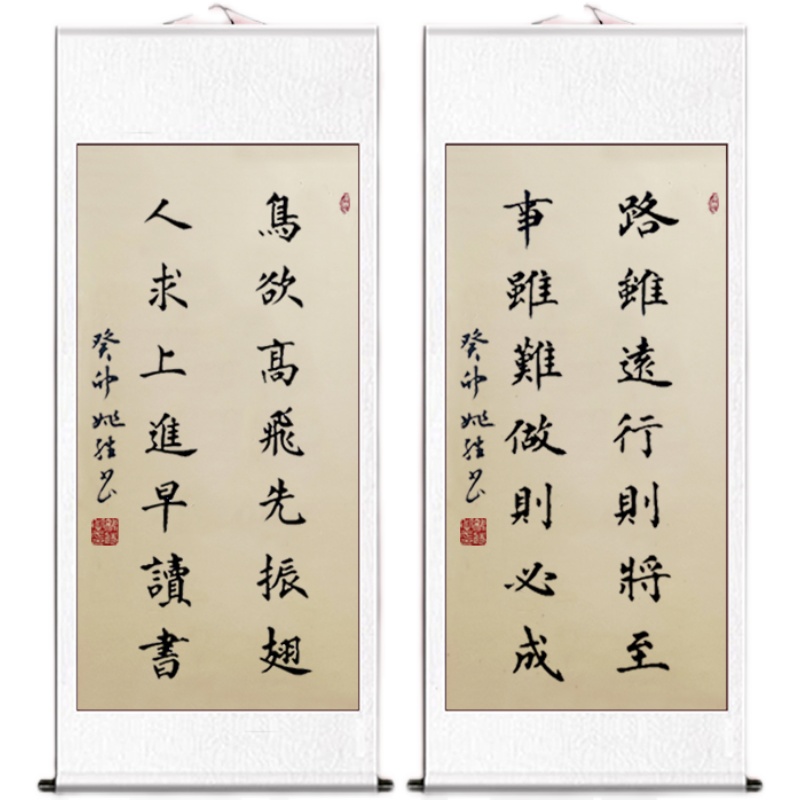 鳥欲高飛先振翅
人求上進早讀書
癸卯 姚 书
路雖遠行則將至
事雖難做則必成
癸卯 姚 书